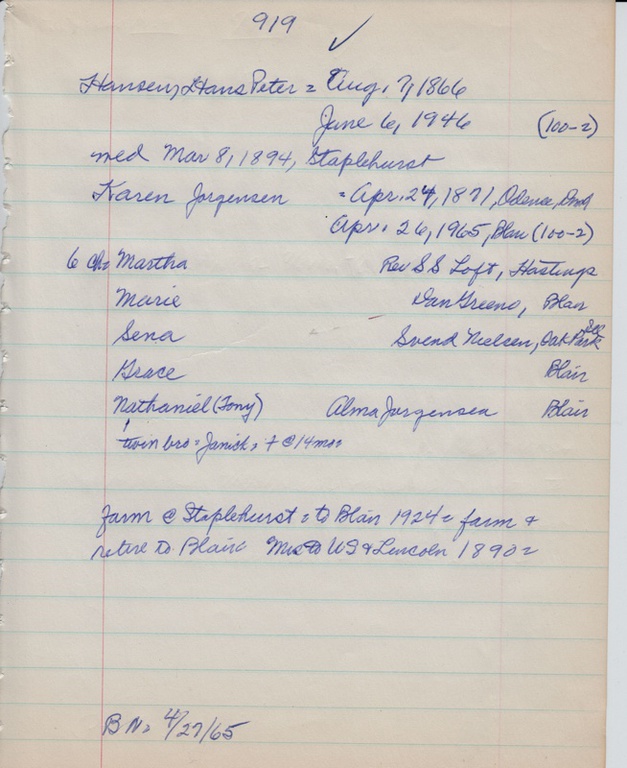 919 ✓
Hansen, Hans Peter = Aug. 7, 1866
June 6, 1946 (100-2)
med Mar 8, 1894, Staplehurst
Karen Jorgensen = Apr. 24, 1871, Odence, Dmk
Apr. 26, 1965, Blair (100-2)
6 Ch: Martha Rev S S Loft, Hastings
Marie Dan Greeno, Blair
Sena Svend Nielsen, Oak Park
Grace Blair
Nathaniel (Tony) Alma Jorgensen Blair
twin bro = Janish, + @ 14 mos
farm @ Staplehurst = to Blair 1924 = farm +
retire to Blair Mrs to US & Lincoln 1890 =
BN = 4/27/65